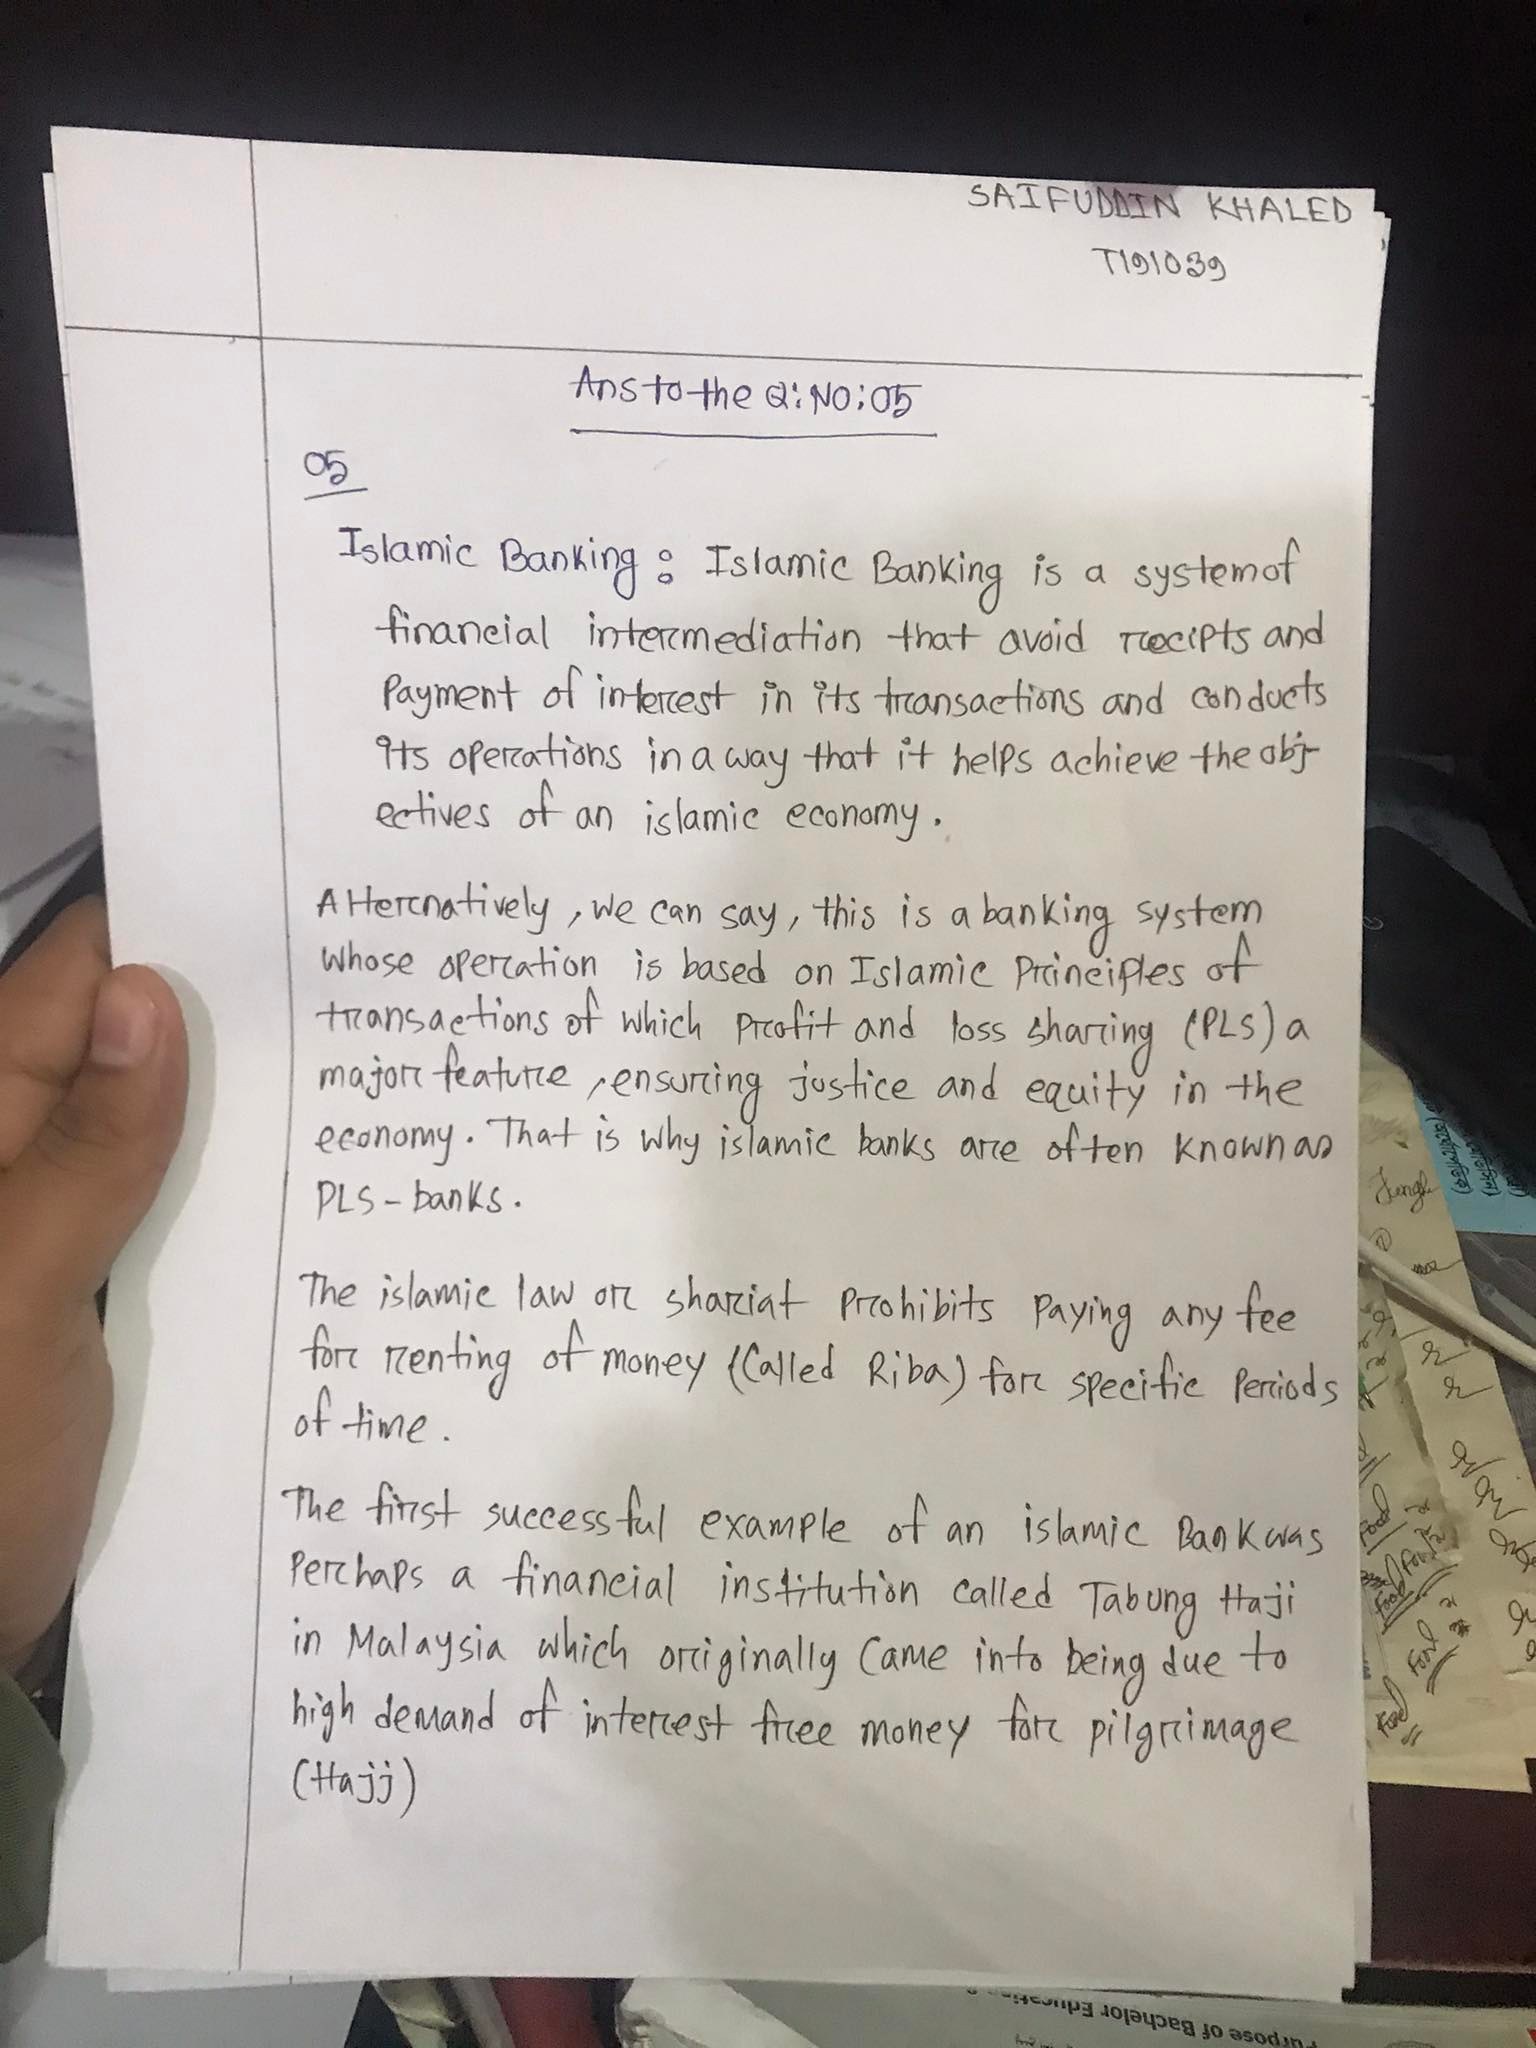 SAIFUDDIN KHALED
T191039
Ans to the Q: NO: 05
05
Islamic Banking : Islamic Banking is a system of
financial intermediation that avoid recipts and
Payment of interest in its transactions and conducts
its operations in a way that it helps achieve the obj-
ectives of an islamic economy.
Alternatively, we can say, this is a banking system
whose operation is based on Islamic Principles of
transactions of which Profit and loss sharing (PLS) a
major feature, ensuring justice and equity in the
economy. That is why islamic banks are often known as
PLS - banks.
The islamic law or shariat Prohibits Paying any fee
for renting of money (Called Riba) for specific Periods
of time.
The first successful example of an islamic Bank was
Perhaps a financial institution called Tabung Haji
in Malaysia which originally came into being due to
high demand of interest free money for pilgrimage
(Hajj)
Jungle
Food
Food
Food
Food
Purpose of Bachelor Education